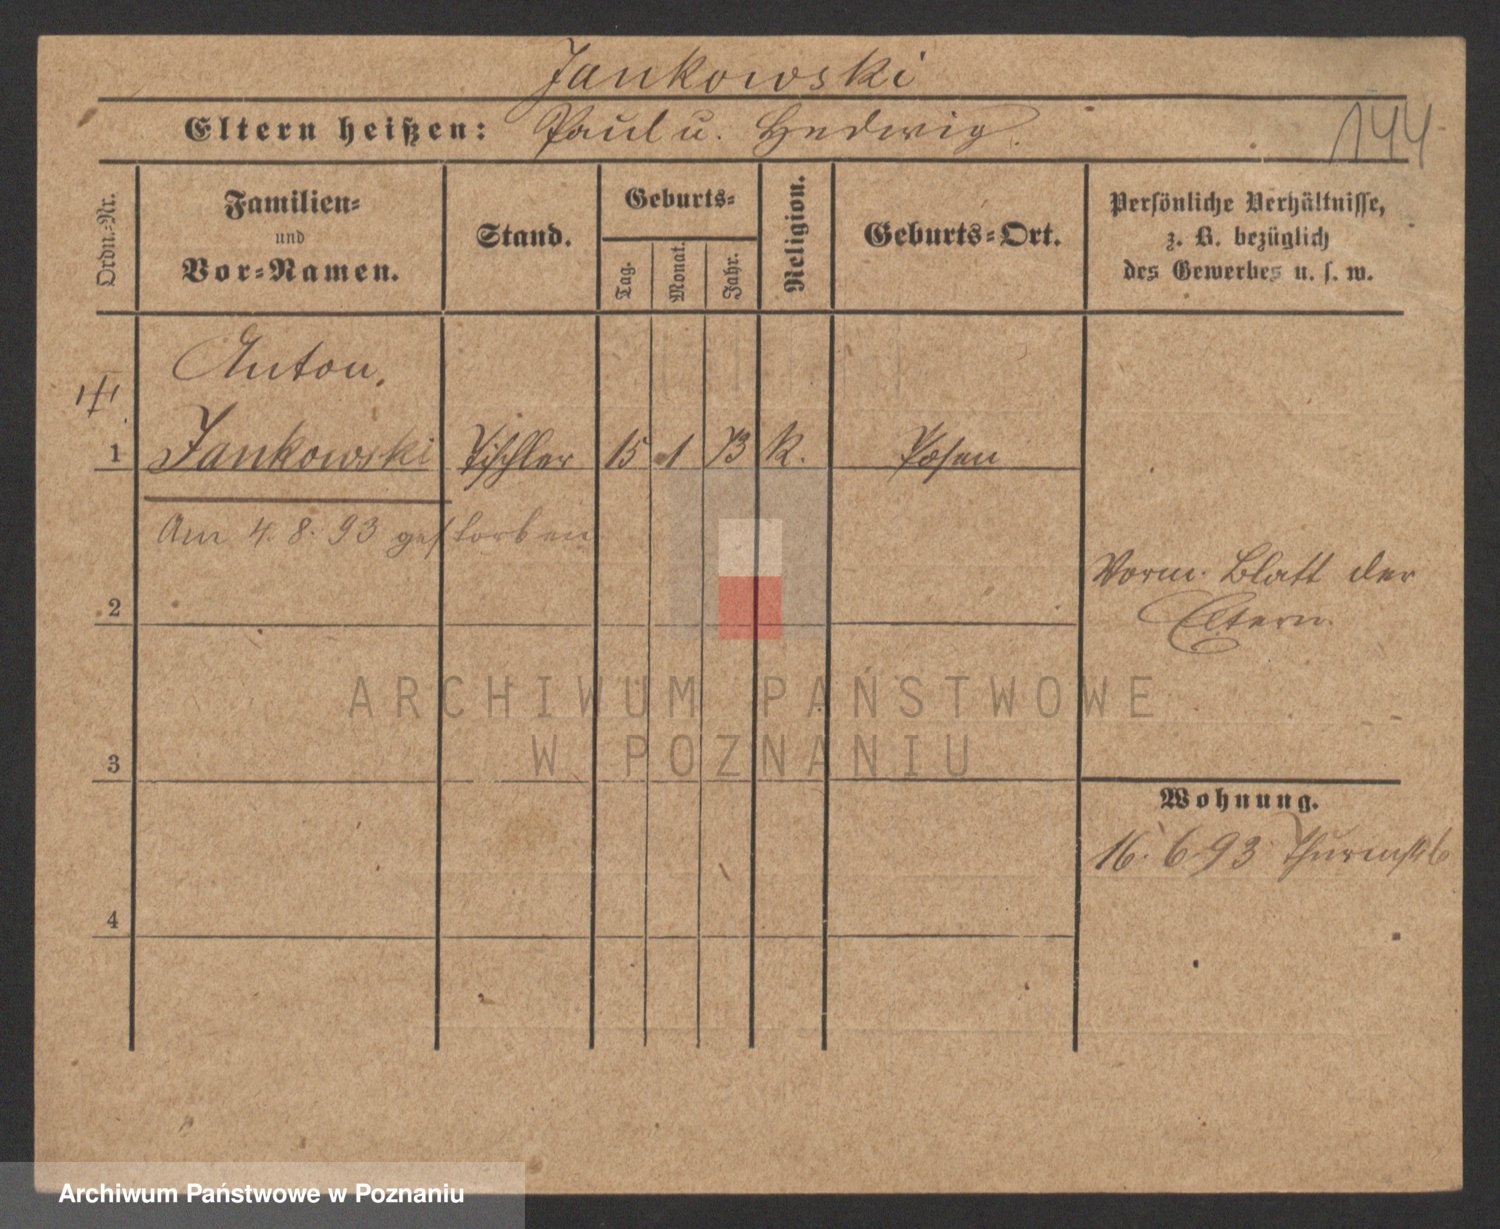 Jankowski
Eltern heißen: Paul u. Hedwig.
144
Ordn.-Nr.
Familien-
und
Vor-Namen.
Stand.
Geburts-
Tag.
Monat.
Jahr.
Religion.
Geburts-Ort.
Persönliche Verhältnisse,
z. B. bezüglich
des Gewerbes u. s. w.
Anton
1 Jankowski Tischler 15 1 73 K. Posen
Am 4. 8. 93 gestorben
Vorm. Blatt der
Eltern
2
3
4
Wohnung.
16. 6. 93 Thurmstr 6
ARCHIWUM PAŃSTWOWE
W POZNANIU
Archiwum Państwowe w Poznaniu